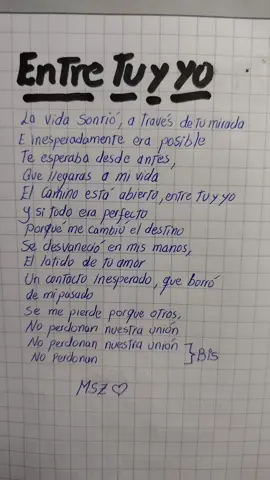 Entre Tu y yo
La vida Sonrió, a través de tu mirada
E inesperadamente era posible
Te esperaba desde antes,
Que llegaras a mi vida
El camino está abierto, entre tu y yo
Y si todo era perfecto
Porqué me cambió el destino
Se desvaneció en mis manos,
El latido de tu amor
Un contacto inesperado, que borró
de mi pasado
Se me pierde porque otros,
No perdonan nuestra unión
No perdonan nuestra unión
No Perdonan
Bis
MSZ